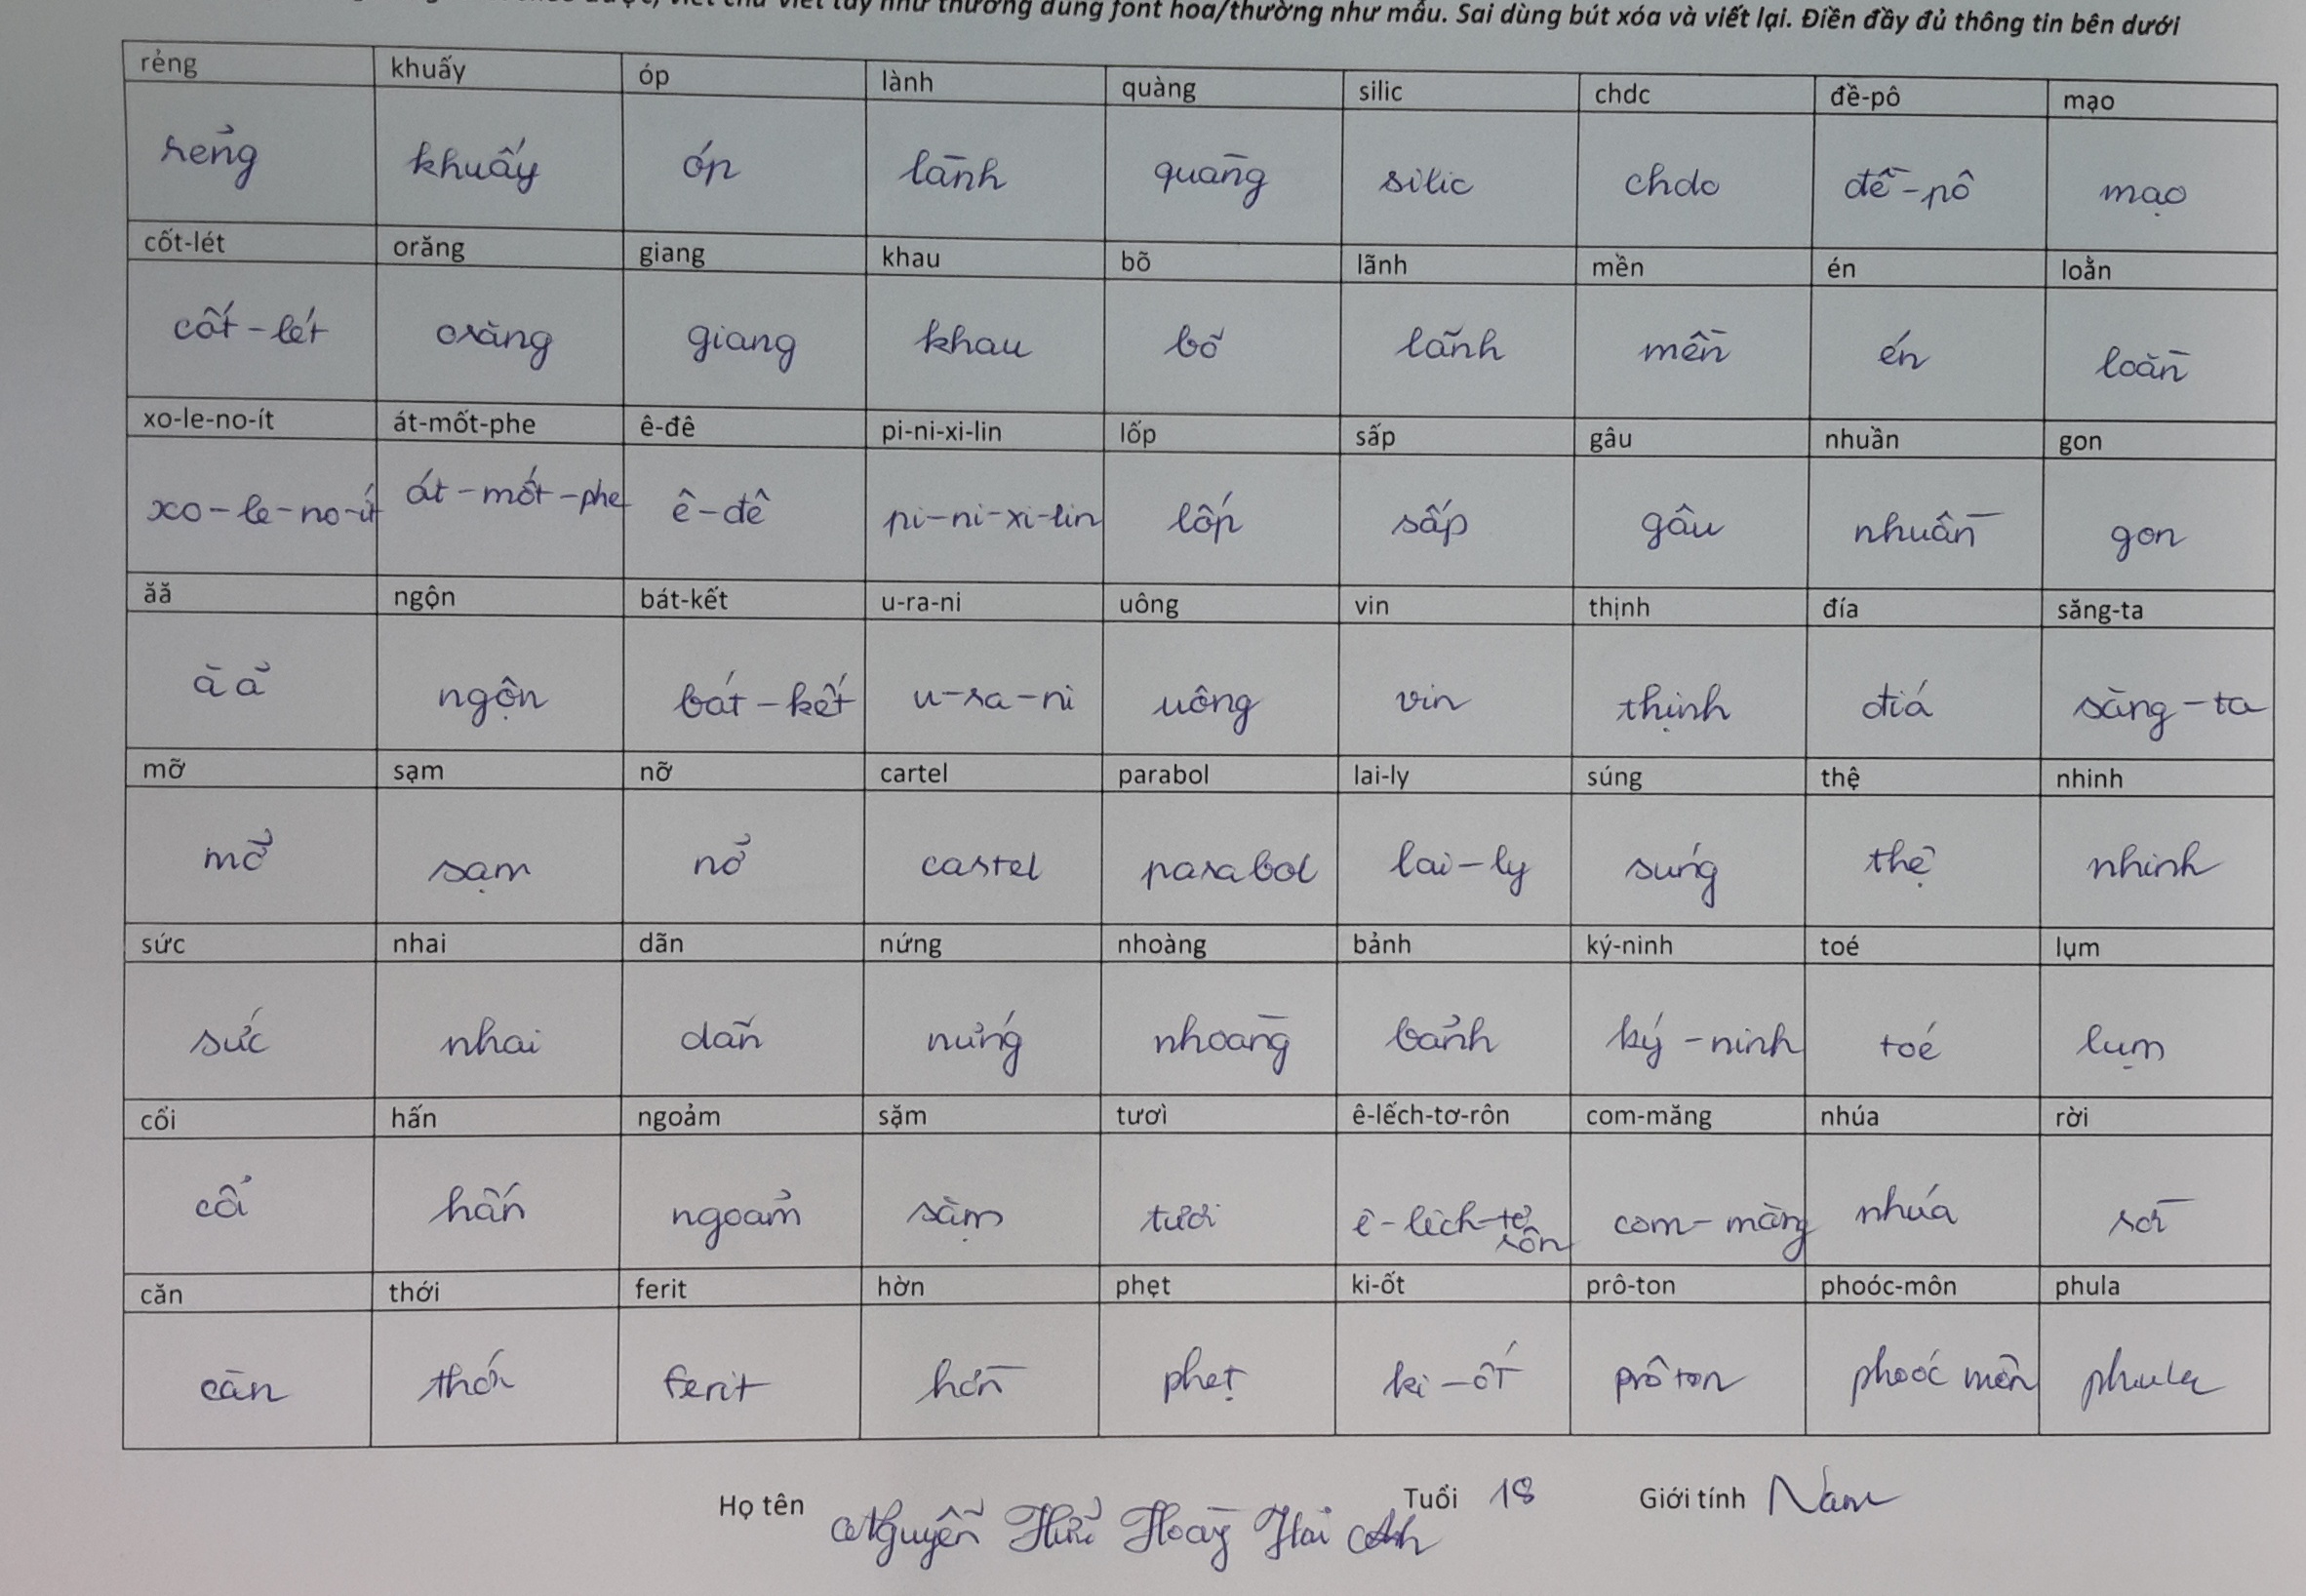 viết chữ viết tay như thường dùng font hoa/thường như mẫu. Sai dùng bút xóa và viết lại. Điền đầy đủ thông tin bên dưới
rẻng khuấy óp lành quàng silic chdc đề-pô mạo
rẻng khuấy óp lành quàng silic chdc đề-pô mạo
cốt-lét orăng giang khau bõ lãnh mền én loằn
cốt-lét orăng giang khau bõ lãnh mền én loằn
xo-le-no-ít át-mốt-phe ê-đê pi-ni-xi-lin lốp sấp gâu nhuần gon
xo-le-no-ít át-mốt-phe ê-đê pi-ni-xi-lin lốp sấp gâu nhuần gon
ăă ngộn bát-kết u-ra-ni uông vin thịnh đía săng-ta
ăă ngộn bát-kết u-ra-ni uông vin thịnh đía săng-ta
mỡ sạm nỡ cartel parabol lai-ly súng thệ nhinh
mỡ sạm nỡ cartel parabol lai-ly súng thệ nhinh
sức nhai dãn nứng nhoàng bảnh ký-ninh toé lụm
sức nhai dãn nứng nhoàng bảnh ký-ninh toé lụm
cổi hấn ngoảm sặm tươì ê-lếch-tơ-rôn com-măng nhúa rời
cổi hấn ngoảm sặm tươi ê-lếch-tơ rôn com-măng nhúa rời
căn thới ferit hờn phẹt ki-ốt prô-ton phoóc-môn phula
căn thới ferit hờn phẹt ki-ốt prôton phoóc môn phula
Họ tên Nguyễn Hữu Hoàng Hải Anh Tuổi 18 Giới tính Nam